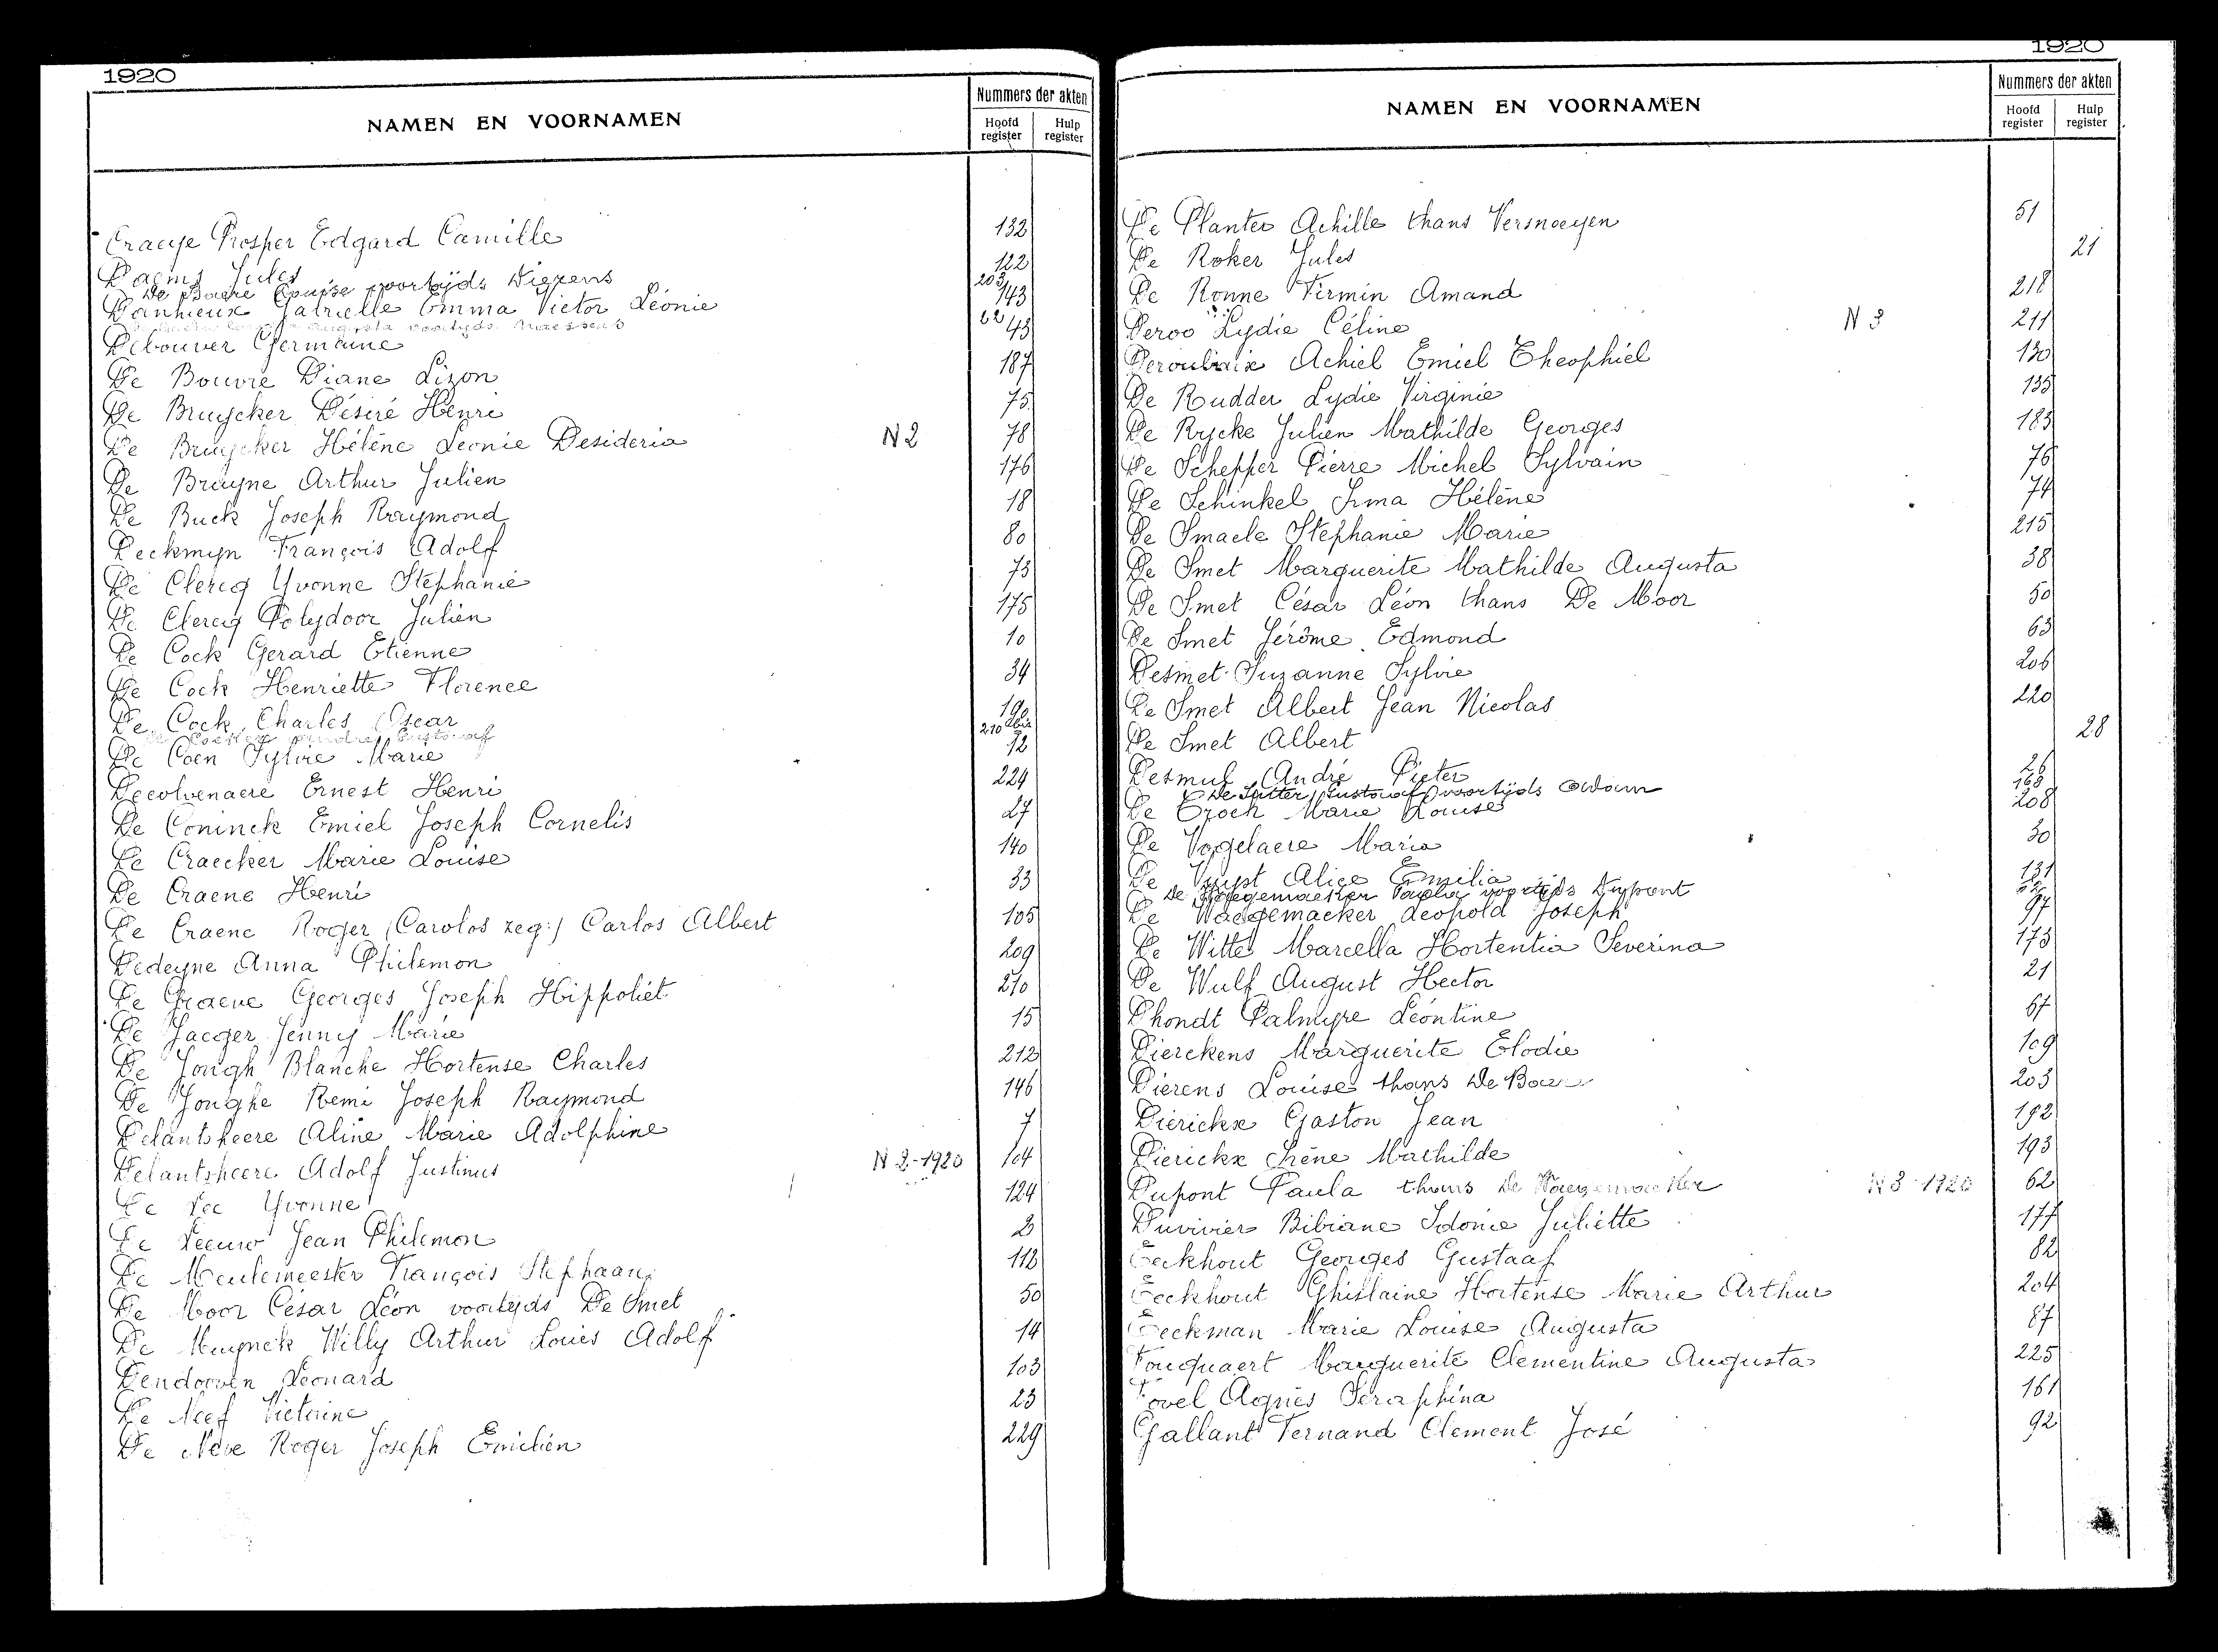 1920
NAMEN EN VOORNAMEN
Nummers der akten
Hoofd register
Hulp register
Craeye Prosper Edgard Camille 132
Daems Jules 122
De Baere Louise voortijds Dierens 203
Danhieux Gabrielle Emma Victor Léonie 143
Augusta voortijds Naessens 62
Debouver Germaine 43
De Bouvre Diane Lizon 187
De Bruycker Désiré Henri 75
De Bruycker Hélène Leonie Desideria N 2 78
De Bruyne Arthur Julien 176
De Buck Joseph Raymond 18
Deckmyn François Adolf 80
De Clercq Yvonne Stephanie 73
De Clercq Polydoor Julien 175
De Cock Gerard Etienne 10
De Cock Henriette Florence 34
De Cock Charles Oscar 190
De Gustaaf 210 bis
De Coen Sylvie Marie 12
Decolvenaere Ernest Henri 224
De Coninck Emiel Joseph Cornelis 27
De Craecker Marie Louise 140
De Craene Henri 33
De Craene Roger (Carolos zeg:) Carlos Albert 105
Dedeyne Anna Philemon 209
De Graeve Georges Joseph Hippoliet 210
De Jaeger Jenny Marie 15
De Jongh Blanche Hortense Charles 212
De Jonghe Remi Joseph Raymond 146
Delantsheere Aline Marie Adolphine 7
Delantsheere Adolf Justinus N 2-1920 104
De Lee Yvonne 124
De Leeuw Jean Philemon 2
De Meulemeester François Stephaan 112
De Moor César Léon voortijds De Smet 50
De Muynck Willy Arthur Louis Adolf 14
Dendooven Léonard 103
De Neef Victorine 23
De Neve Roger Joseph Emilien 229
1920
NAMEN EN VOORNAMEN
Nummers der akten
Hoofd register
Hulp register
De Planter Achille thans Versnoeyen 51
De Roker Jules 21
De Ronne Firmin Amand 218
Deroo Lydie Céline N 3 211
Deroubaix Achiel Emiel Theophiel 130
De Rudder Lydie Virginie 135
De Rycke Julien Mathilde Georges 183
De Schepper Pierre Michel Sylvain 76
De Schinkel Irma Hélène 74
De Smaele Stephanie Marie 215
De Smet Marguerite Mathilde Augusta 38
De Smet César Léon thans De Moor 50
De Smet Jérôme Edmond 63
Desmet Suzanne Sylvie 206
De Smet Albert Jean Nicolas 220
De Smet Albert 28
Desmul André Pieter 26
De Sutter Gustaaf voortijds 168
De Troch Marie Louise 208
De Vogelaere Maria 30
De Vuyst Alice Emilia 131
De Waegemaeker Paula voortijds Dupont 62
De Waegemaeker Leopold Joseph 97
De Witte Marcella Hortentia Severina 173
De Wulf August Hector 21
Dhondt Palmyre Léontine 67
Dierckens Marguerite Elodie 109
Dierens Louise thans De Baere 203
Dierickx Gaston Jean 192
Dierickx Irène Mathilde 193
Dupont Paula thans De Waegemaeker N 3-1920 62
Duvivier Bibiane Idonie Juliette 177
Eeckhout Georges Gustaaf 82
Eeckhout Ghislaine Hortense Marie Arthur 204
Eeckman Marie Louise Augusta 87
Fouquaert Marguerite Clementine Augusta 225
Fovel Agnès Seraphina 161
Gallant Fernand Clement José 92